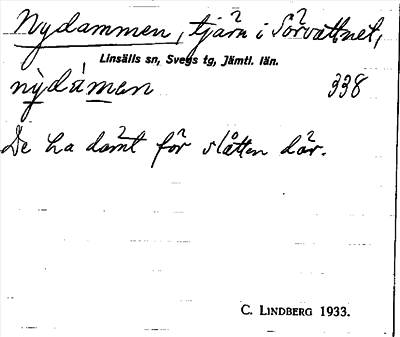 Nydammen, tjärn i Sörvattnet,
Linsälls sn, Svegs tg, Jämtl. län.
nỳdámen 338
De ha dämt för slåtten där.
C. LINDBERG 1933.